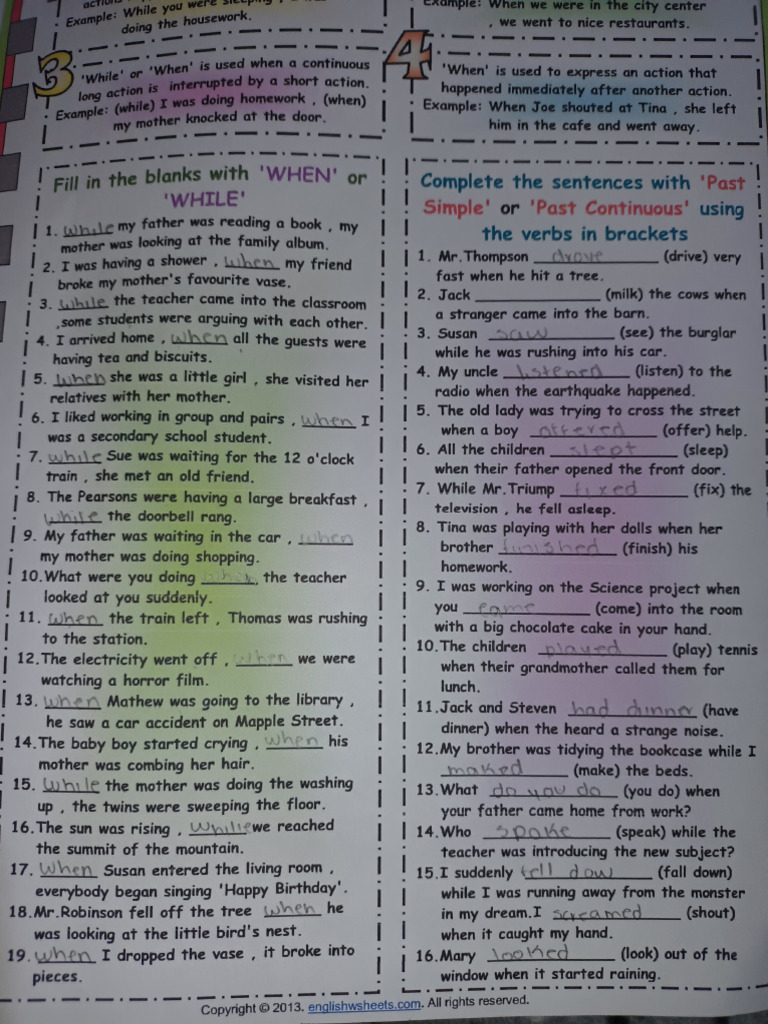 Example: While you were sleeping ,
doing the housework.
Example: When we were in the city center
, we went to nice restaurants.
3
'While' or 'When' is used when a continuous
long action is interrupted by a short action.
Example: (while) I was doing homework , (when)
my mother knocked at the door.
4
'When' is used to express an action that
happened immediately after another action.
Example: When Joe shouted at Tina , she left
him in the cafe and went away.
Fill in the blanks with 'WHEN' or
'WHILE'
1. while my father was reading a book , my
mother was looking at the family album.
2. I was having a shower , when my friend
broke my mother's favourite vase.
3. while the teacher came into the classroom
,some students were arguing with each other.
4. I arrived home , when all the guests were
having tea and biscuits.
5. when she was a little girl , she visited her
relatives with her mother.
6. I liked working in group and pairs , when I
was a secondary school student.
7. while Sue was waiting for the 12 o'clock
train , she met an old friend.
8. The Pearsons were having a large breakfast ,
while the doorbell rang.
9. My father was waiting in the car , when
my mother was doing shopping.
10.What were you doing the teacher
looked at you suddenly.
11. when the train left , Thomas was rushing
to the station.
12.The electricity went off , when we were
watching a horror film.
13. when Mathew was going to the library ,
he saw a car accident on Mapple Street.
14.The baby boy started crying , when his
mother was combing her hair.
15. While the mother was doing the washing
up , the twins were sweeping the floor.
16.The sun was rising , while we reached
the summit of the mountain.
17. when Susan entered the living room ,
everybody began singing 'Happy Birthday'.
18.Mr.Robinson fell off the tree when he
was looking at the little bird's nest.
19. when I dropped the vase , it broke into
pieces.
Complete the sentences with 'Past
Simple' or 'Past Continuous' using
the verbs in brackets
1. Mr.Thompson drove (drive) very
fast when he hit a tree.
2. Jack ____________ (milk) the cows when
a stranger came into the barn.
3. Susan saw (see) the burglar
while he was rushing into his car.
4. My uncle listened (listen) to the
radio when the earthquake happened.
5. The old lady was trying to cross the street
when a boy offered (offer) help.
6. All the children slept (sleep)
when their father opened the front door.
7. While Mr.Triump fixed (fix) the
television , he fell asleep.
8. Tina was playing with her dolls when her
brother finished (finish) his
homework.
9. I was working on the Science project when
you came (come) into the room
with a big chocolate cake in your hand.
10.The children played (play) tennis
when their grandmother called them for
lunch.
11.Jack and Steven had dinner (have
dinner) when the heard a strange noise.
12.My brother was tidying the bookcase while I
maked (make) the beds.
13.What do you do (you do) when
your father came home from work?
14.Who spoke (speak) while the
teacher was introducing the new subject?
15.I suddenly fell dow (fall down)
while I was running away from the monster
in my dream.I screamed (shout)
when it caught my hand.
16.Mary looked (look) out of the
window when it started raining.
Copyright © 2013. englishwsheets.com. All rights reserved.